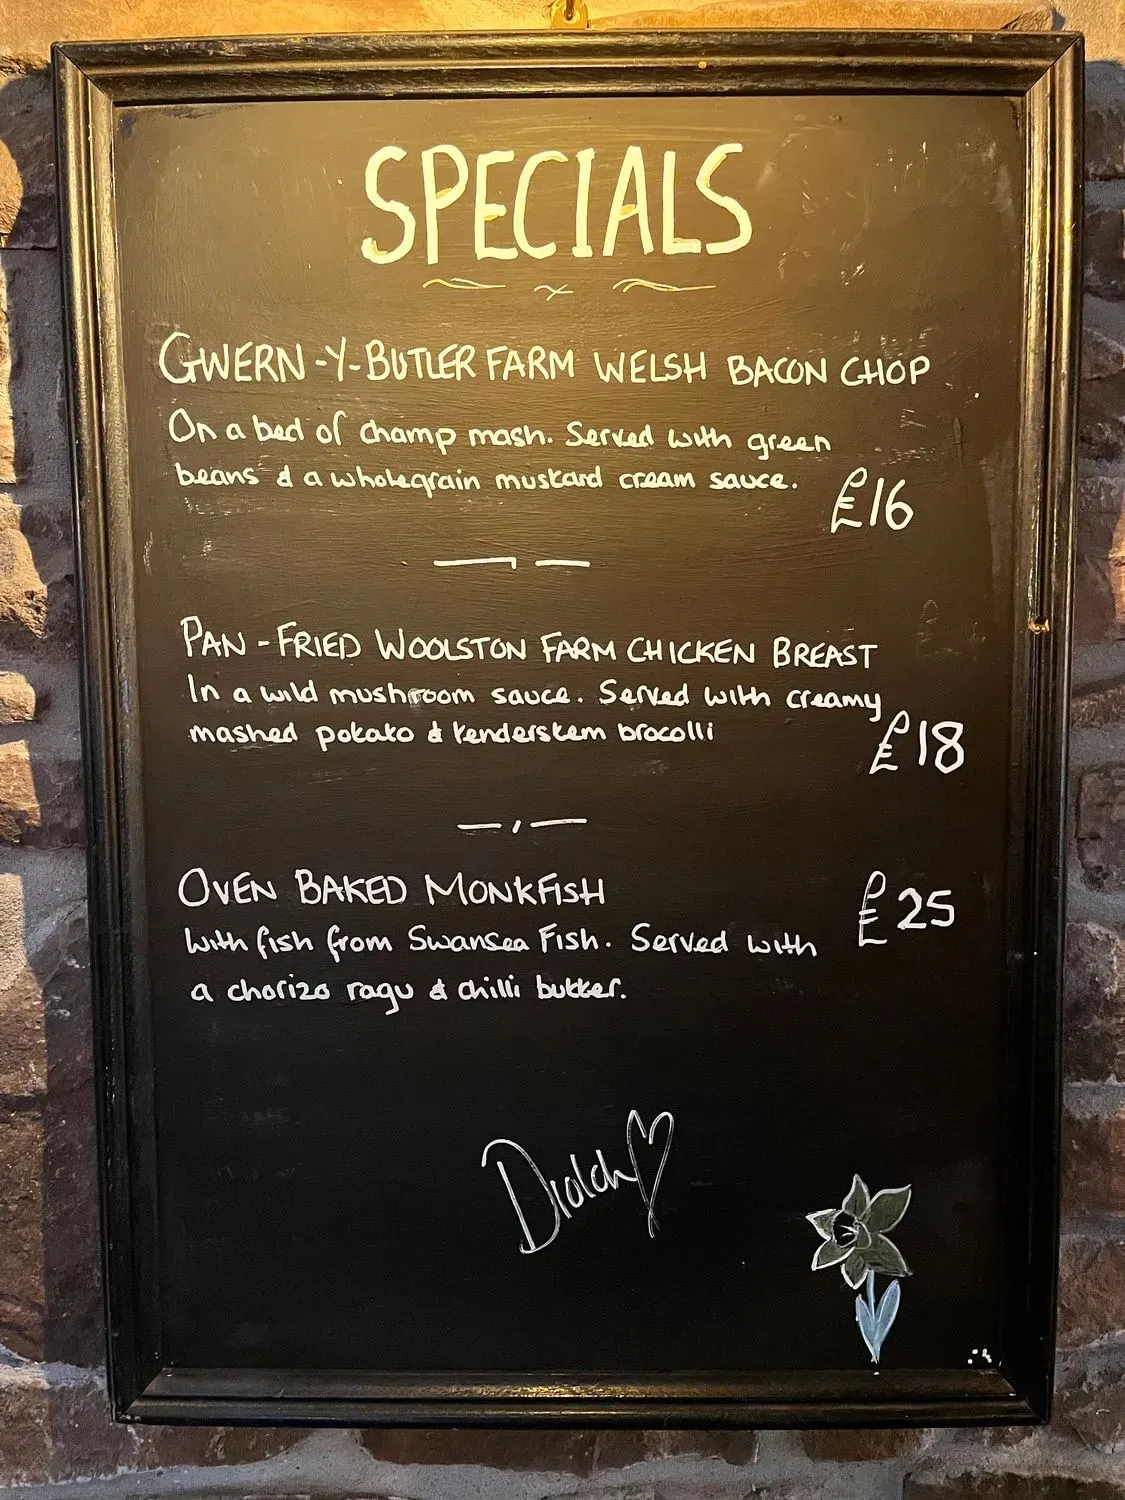 SPECIALS
GWERN-Y-BUTLER FARM WELSH BACON CHOP
On a bed of champ mash. Served with green
beans & a wholegrain mustard cream sauce.
£16
PAN-FRIED WOOLSTON FARM CHICKEN BREAST
In a wild mushroom sauce. Served with creamy
mashed potato & tenderstem brocolli
£18
OVEN BAKED MONKFISH
£25
with fish from Swansea Fish. Served with
a chorizo ragu & chilli butter.
Diolch